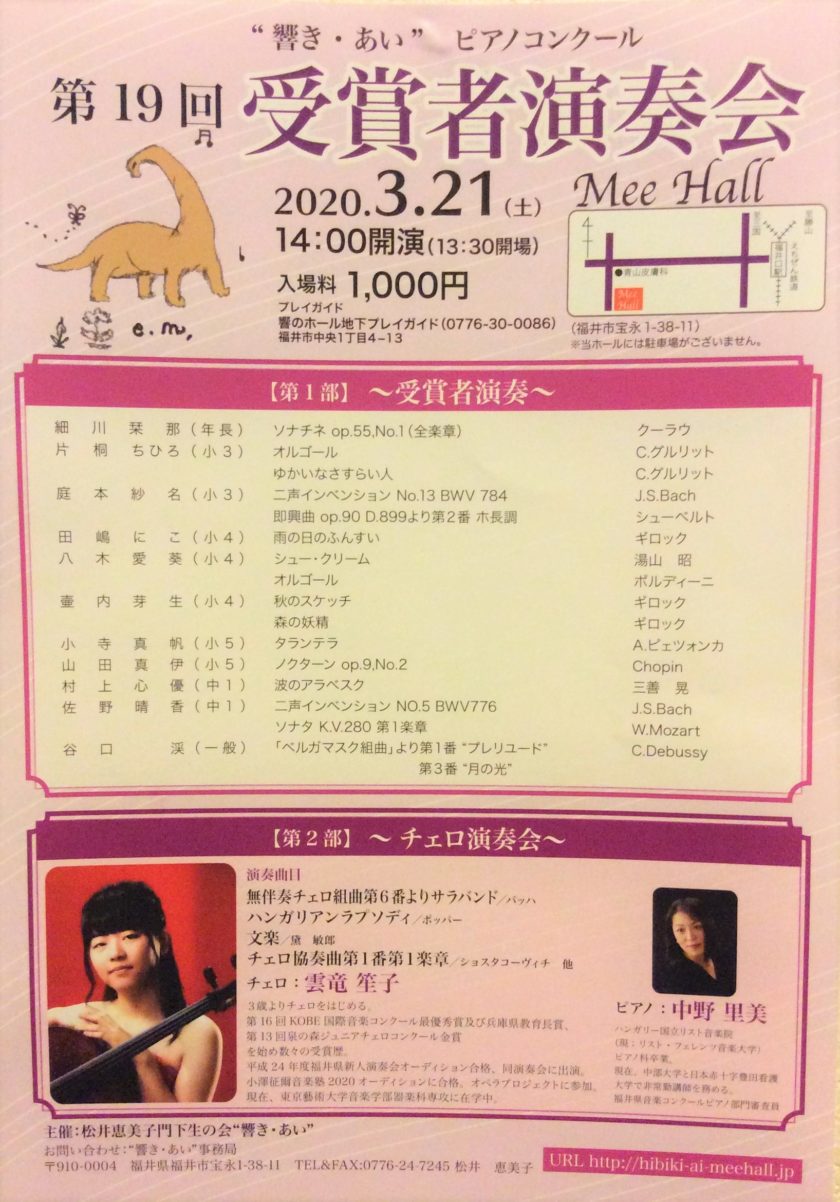 “響き・あい” ピアノコンクール
第19回 受賞者演奏会
2020.3.21(土)
Mee Hall
14：00開演(13：30開場)
入場料 1,000円
プレイガイド
響のホール地下プレイガイド(0776-30-0086)
福井市中央1丁目4−13
4
至三国
至勝山
福井口駅
えちぜん鉄道
青山皮膚科
Mee
Hall
(福井市宝永1-38-11)
※当ホールには駐車場がございません。
e.m,
【第1部】 〜受賞者演奏〜
細川栞那(年長) ソナチネ op.55,No.1(全楽章) クーラウ
片桐ちひろ(小3) オルゴール C.グルリット
ゆかいなさすらい人 C.グルリット
庭本紗名(小3) 二声インベンション No.13 BWV 784 J.S.Bach
即興曲 op.90 D.899より第2番 ホ長調 シューベルト
田嶋にこ(小4) 雨の日のふんすい ギロック
八木愛葵(小4) シュー・クリーム 湯山 昭
オルゴール ポルディーニ
壷内芽生(小4) 秋のスケッチ ギロック
森の妖精 ギロック
小寺真帆(小5) タランテラ A.ピエツォンカ
山田真伊(小5) ノクターン op.9,No.2 Chopin
村上心優(中1) 波のアラベスク 三善 晃
佐野晴香(中1) 二声インベンション NO.5 BWV776 J.S.Bach
ソナタ K.V.280 第1楽章 W.Mozart
谷口 渓(一般) 「ベルガマスク組曲」より第1番 “プレリュード” C.Debussy
第3番 “月の光”
【第2部】 〜チェロ演奏会〜
演奏曲目
無伴奏チェロ組曲第6番よりサラバンド／バッハ
ハンガリアンラプソディ／ポッパー
文楽／黛 敏郎
チェロ協奏曲第1番第1楽章／ショスタコーヴィチ 他
チェロ：雲竜 笙子
3歳よりチェロをはじめる。
第16回KOBE国際音楽コンクール最優秀賞及び兵庫県教育長賞、
第13回泉の森ジュニアチェロコンクール金賞
を始め数々の受賞歴。
平成24年度福井県新人演奏会オーディション合格、同演奏会に出演。
小澤征爾音楽塾2020オーディションに合格。オペラプロジェクトに参加。
現在、東京藝術大学音楽学部器楽科専攻に在学中。
ピアノ：中野 里美
ハンガリー国立リスト音楽院
(現；リスト・フェレンツ音楽大学)
ピアノ科卒業。
現在、中部大学と日本赤十字豊田看護
大学で非常勤講師を務める。
福井県音楽コンクールピアノ部門審査員
主催：松井恵美子門下生の会“響き・あい”
お問い合わせ：“響き・あい”事務局
〒910-0004 福井県福井市宝永1-38-11 TEL&FAX:0776-24-7245 松井 恵美子
URL http://hibiki-ai-meehall.jp